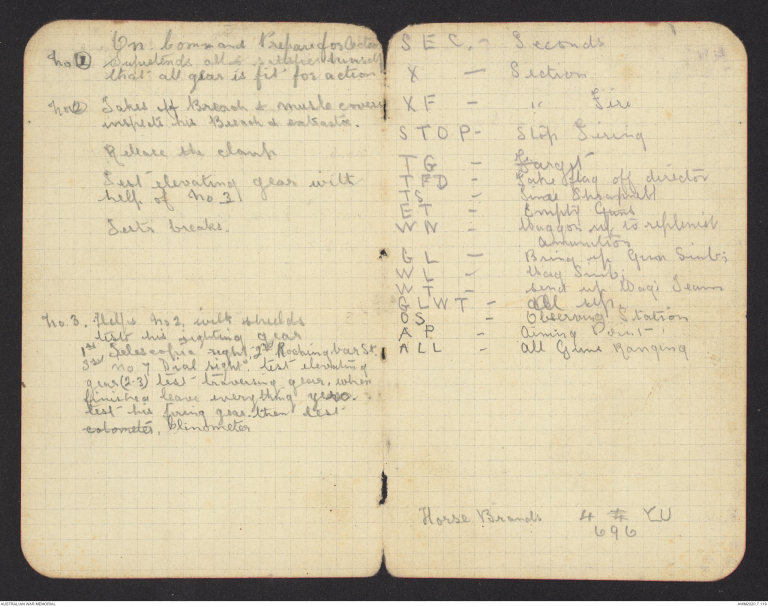 On Command Prepare for Action
No 1 Supretends all & satisfies himself
that all gear is fit for action
No 2 Takes off Breach & muscle covers
inspects his Breach & extractor.
Release the clamp
Test elevating gear with
help of No 3
Tests breaks.
No. 3. Helps No 2 with shields
test his sighting gear
1st Telescopic sight, 2nd Rocking bar St.
3rd No 7 Dial sight. test elevating
gear (2-3) test traversing gear, when
finished leave everything zero.
test his firing gear. then test
Clinometer
SEC. - Seconds
X - Section
XF - " Fire
STOP - Stop Firing
TG - Target
TFD - Take flag off director
TS - Time Shrapnell
ET - Empty Guns
WN - Waggon up to replenish
amunition
GL - Bring up Gun Limb's
WL - Wag Limb.
WT - send up Wag. Teams
GLWT - all up.
OS - Observing Station
AP - Aiming Point
ALL - all Guns Ranging
Horse Brands 4 YU
696
AUSTRALIAN WAR MEMORIAL